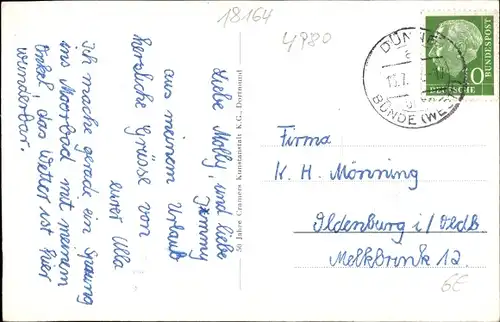 18164
4980
Liebe Molly, und liebe
Tommy
aus meinem Urlaub
herzliche Grüsse von
eurer Ulla
Ich mache gerade ein Sprung
ins Moorbad mit meinem
Onkel, das Wetter ist hier
wunderbar.
50 Jahre Cramers Kunstanstalt K.G., Dortmund
DÜNNE
BÜNDE (WE
DEUTSCHE
BUNDESPOST
10
Firma
K. H. Mönning
Oldenburg i/Oldb
Melkbrink 12.
6E